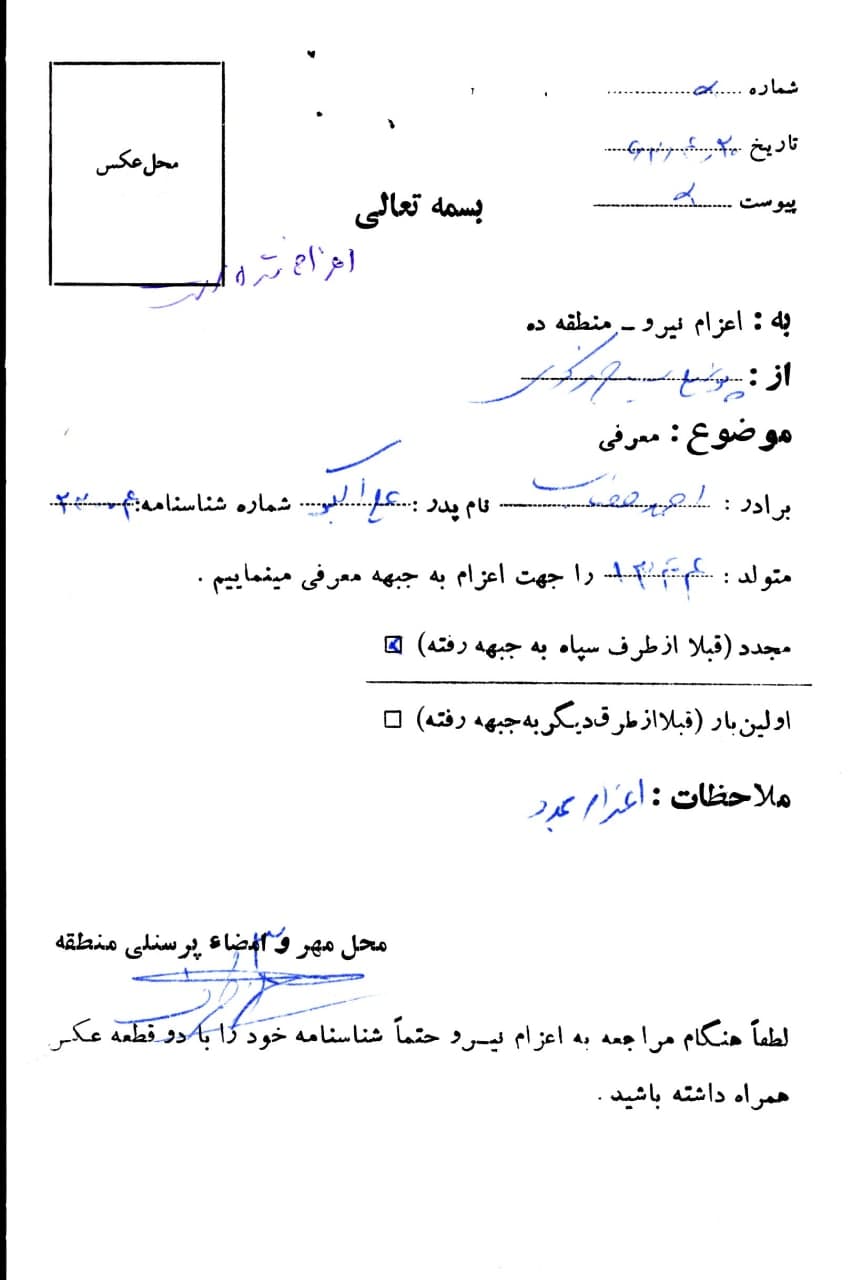 شماره
تاریخ
پیوست
محل عکس
بسمه تعالی
اعزام شده است
به : اعزام نیرو - منطقه ده
از :
موضوع : معرفی
برادر : احمد نام پدر : علی اکبر شماره شناسنامه:
متولد : را جهت اعزام به جبهه معرفی مینماییم .
مجدد (قبلا از طرف سپاه به جبهه رفته)
اولین بار (قبلا از طرق دیگر به جبهه رفته)
ملاحظات : اعزام مجدد
محل مهر و امضاء پرسنلی منطقه
لطفاً هنگام مراجعه به اعزام نیرو حتماً شناسنامه خود را با دو قطعه عکس
همراه داشته باشید .